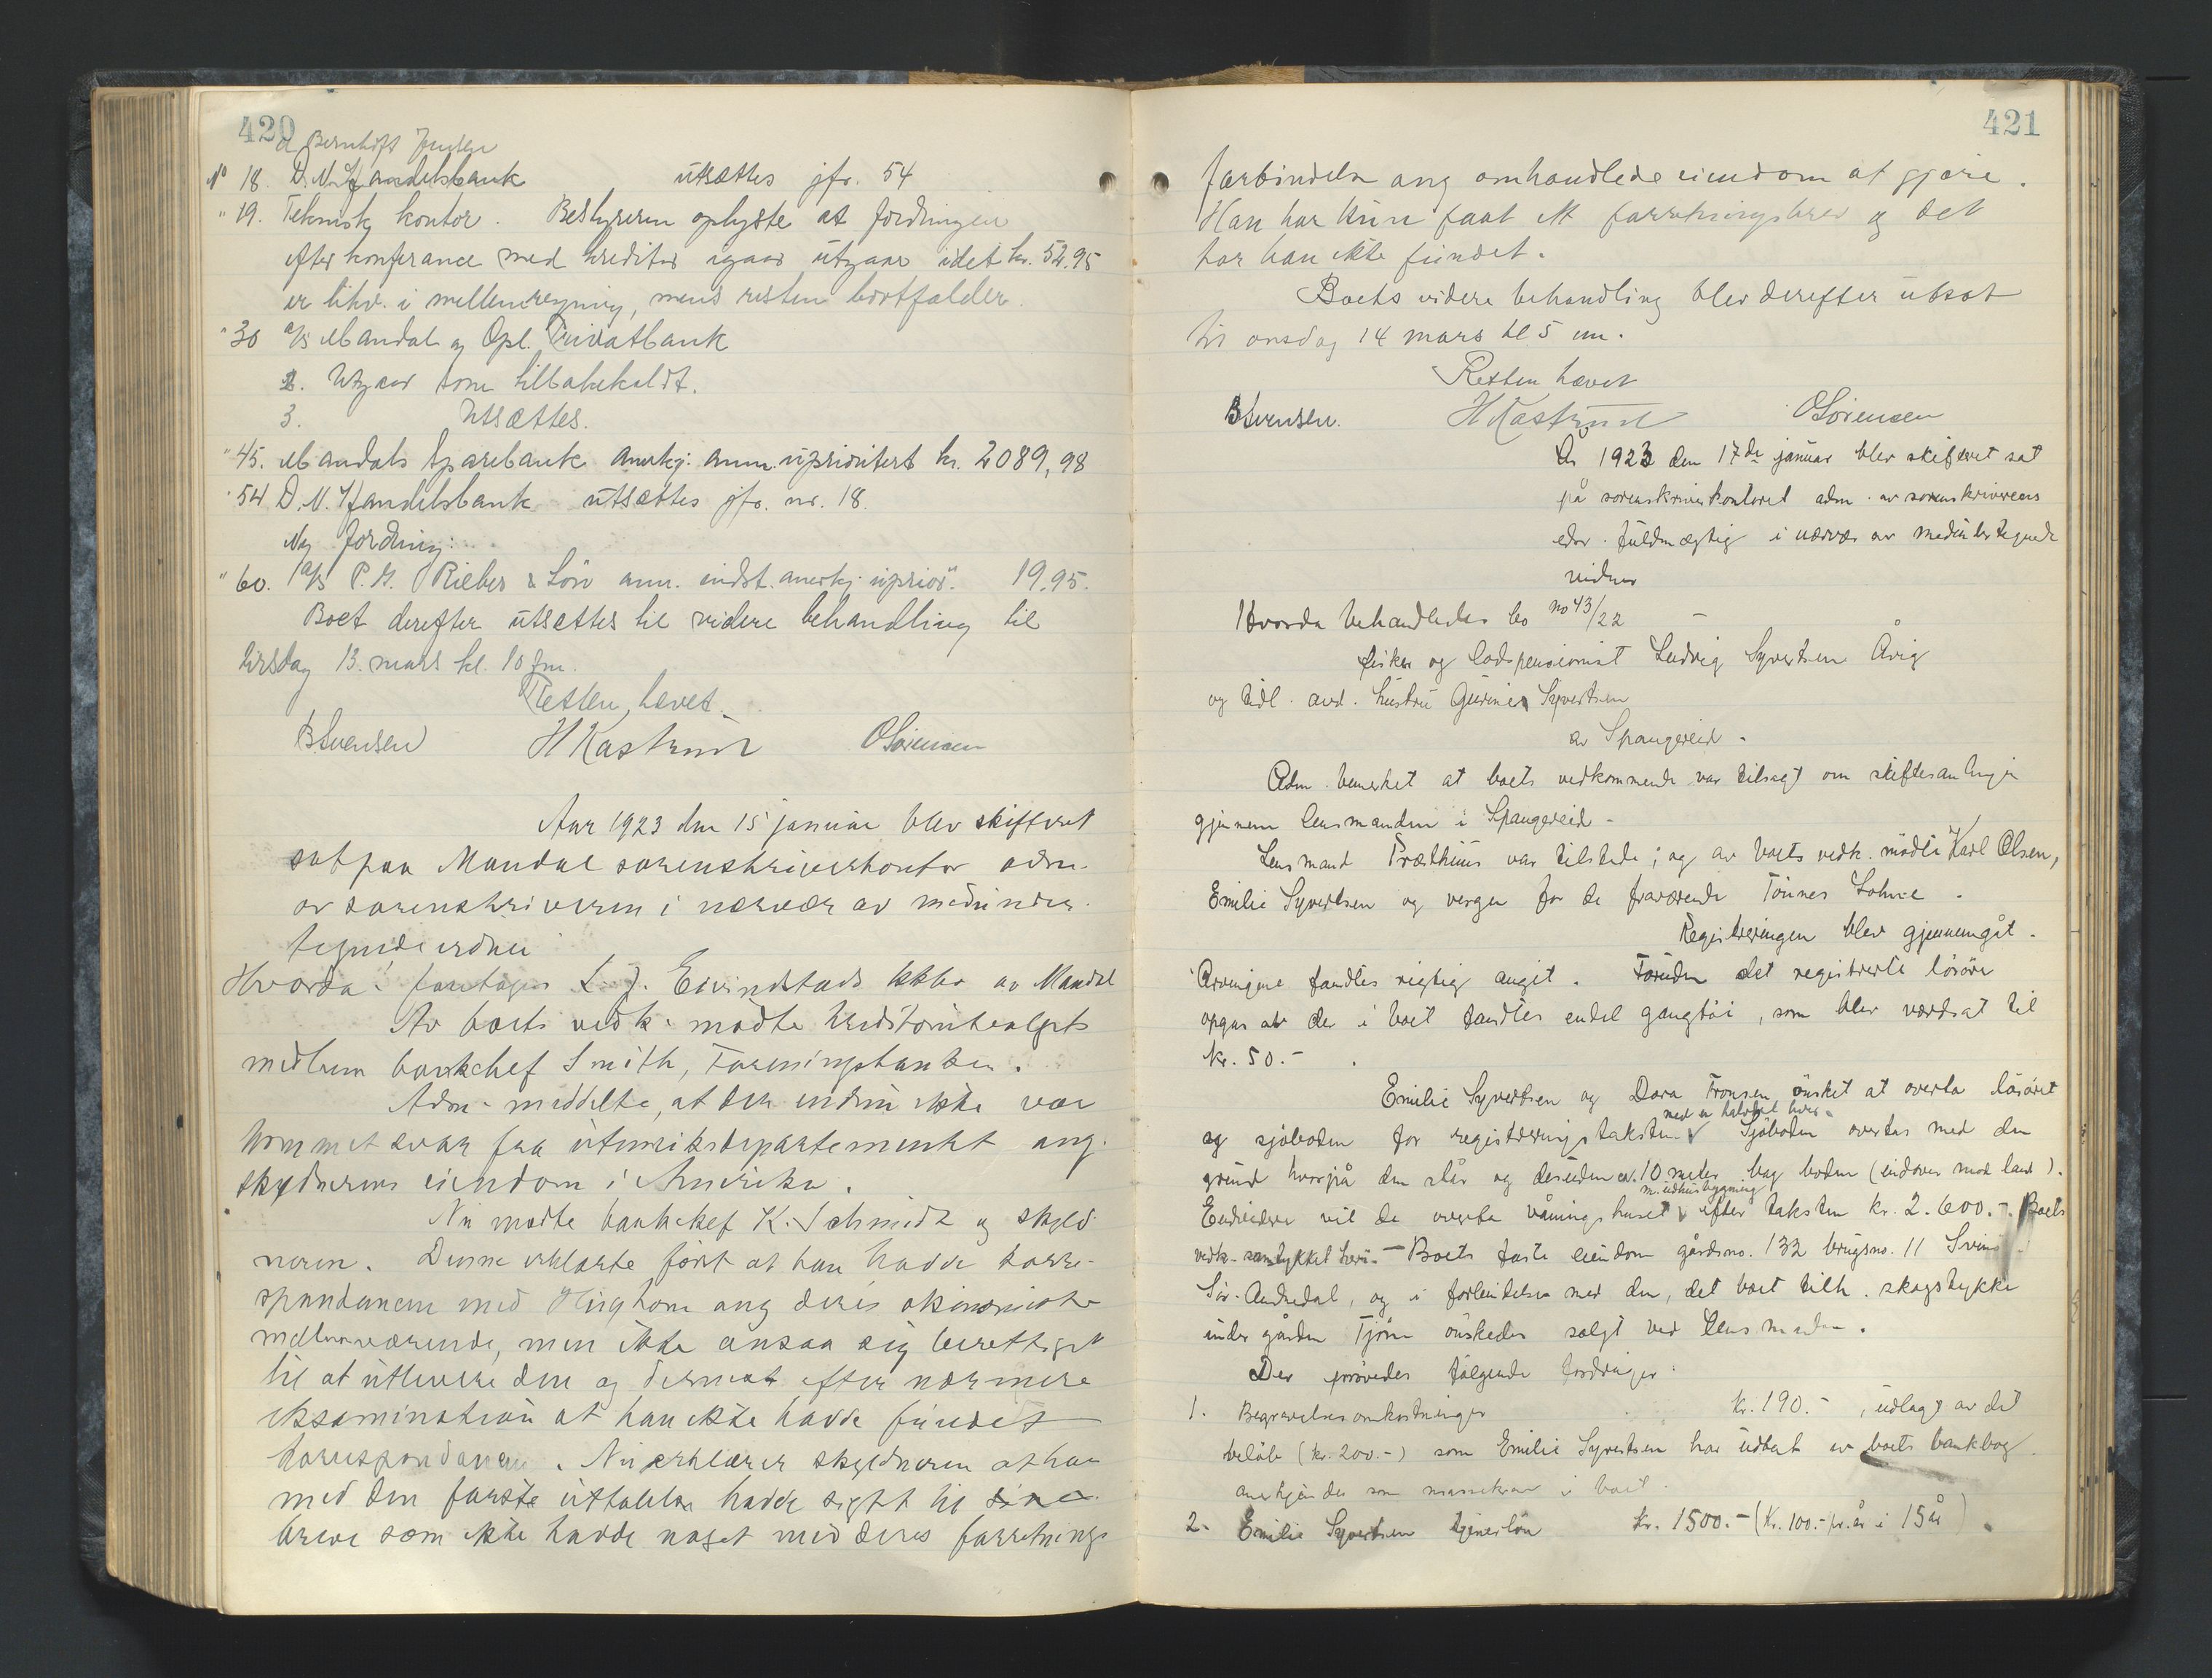 420
Nº 18. D. N. Handelsbank utsættes jfr. 54
" 19. Teknisk kontor. Bestyreren oplyste at fordringen
efter konferance med kreditor igaar utgaar, idet kr. 52.95
er likv. i mellemregning, mens resten bortfalder.
" 30 A/S Mandal og Opl. Privatbank
2. Utgaar som tilbakekaldt.
3. Utsættes.
" 45. Mandals Sparebank anerkj. anm. uprioritert kr. 2089,98
" 54 D. N. Handelsbank utsættes jfr. nr. 18.
Ny fordring:
" 60. A/S P. G. Rieber & Søn anm. indst. anerkj. uprior. 19.95.
Boet derefter utsættes til videre behandling til
tirsdag 13. mars kl. 10 fm.
Retten hævet.
B Svensen H Kastrud O Sørensen
Aar 1923 den 15 januar blev skifteret
sat paa Mandal sorenskriverkontor adm.
av sorenskriveren i nærvær av medunder-
tegnede vidner
Hvorda foretages L. J. Eivindstads kkbo av Mandal
Av boets vedk. mødte kreditorutvalgets
medlem bankchef Smith, Foreningsbanken.
Adm. meddelte, at der endnu ikke var
kommet svar fra utenriksdepartementet ang.
skyldnerens eiendom i Amerika.
Nu møtte bankchef K. Schmidt og skyld-
neren. Denne erklærte først at han hadde korre-
spondancen med ang deres økonomiske
mellemværende, men ikke ansaa sig berettiget
til at utlevere den og dernæst efter nærmere
eksamination at han ikke hadde fundet
korrespondancen. Nu erklærer skyldneren at han
med den første uttalelse hadde sigtet til
breve som ikke hadde noget med deres forretnings
421
forbindelse ang omhandlede eiendom at gjøre.
Han har kun faat et forretningsbrev og det
har han ikke fundet.
Boets videre behandling blev derefter utsat
til onsdag 14 mars kl 5 em.
Retten hævet
B Svensen. H Kastrud O Sørensen
År 1923 den 17de januar blev skifteret sat
på sorenskriverkontoret adm. av sorenskriverens
edsv. fuldmægtig i nærvær av medundertegnede
vidner
Hvorda behandledes bo no 43/22
fisker og lodspensionist Ludvig Syvertsen Åvig
og tidl. avd. hustru Gurine Syvertsen
av Spangereid.
Adm. bemerket at boets vedkommende var tilsagt om skiftesamlingen
gjennem lensmanden i Spangereid.
Lensmand Præsthus var tilstede; og av boets vedk. mødte Karl Olsen,
Emilie Syvertsen og vergen for de fraværende Tønnes Lohne.
Registreringen blev gjennemgåt.
Arvingene fandtes rigtig angit. Foruden det registrerte løsøre
opgas at der i boet fandtes endel gangtøi, som blev værdsat til
kr. 50.-
Emilie Syvertsen og Dora Tronsen ønsket at overta løsøret
og sjøboden for registreringstaksten ν med en halvdel hver. Sjøboden overtas med den
grund hvorpå den står og desuden ca. 10 meter bag boden (indover mod land).
Endvidere vil de overta våningshuset ν m. udhusbygning efter taksten kr. 2.600.-. Boets
vedk. samtykket heri. – Boets faste eiendom gårdsno. 132 brugsno. 11
Sør-Audnedal, og i forbindelse med den, det boet tilh. skogstykke
under gården Tjøm ønskedes solgt ved lensmanden.
Der prøvedes følgende fordringer:
1. Begravelsesomkostninger kr. 190.-, udlagt av det
beløb (kr. 200.-) som Emilie Syvertsen har udtat av boets bankbog.
anerkjendes som massekrav i boet.
2. Emilie Syvertsen tjenerløn kr. 1500.- (kr. 100.- pr. år i 15 år)